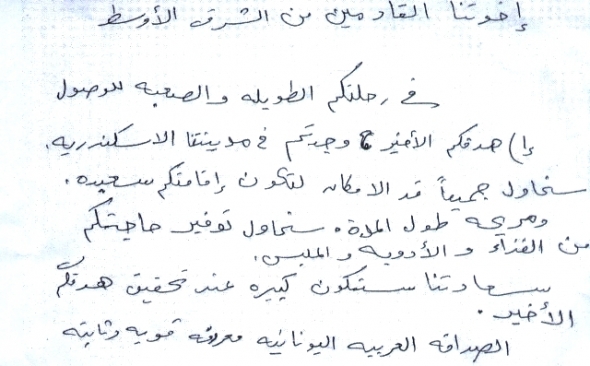 إخوتنا القادمين من الشرق الأوسط
في رحلتكم الطويله و الصعبه للوصول
إلى هدفكم الأخير وجدتم في مدينتنا الاسكندريه.
سنحاول جميعاً قد الامكان لتكون إقامتكم سعيده.
ومريحه طول المدة. سنحاول توفير حاجتكم
من الغذاء و الأدويه و الملبس.
سعادتنا ستكون كبيره عند تحقيق هدفكم
الأخير.
الصداقه العربيه اليونانيه معروفه قويه وثابته